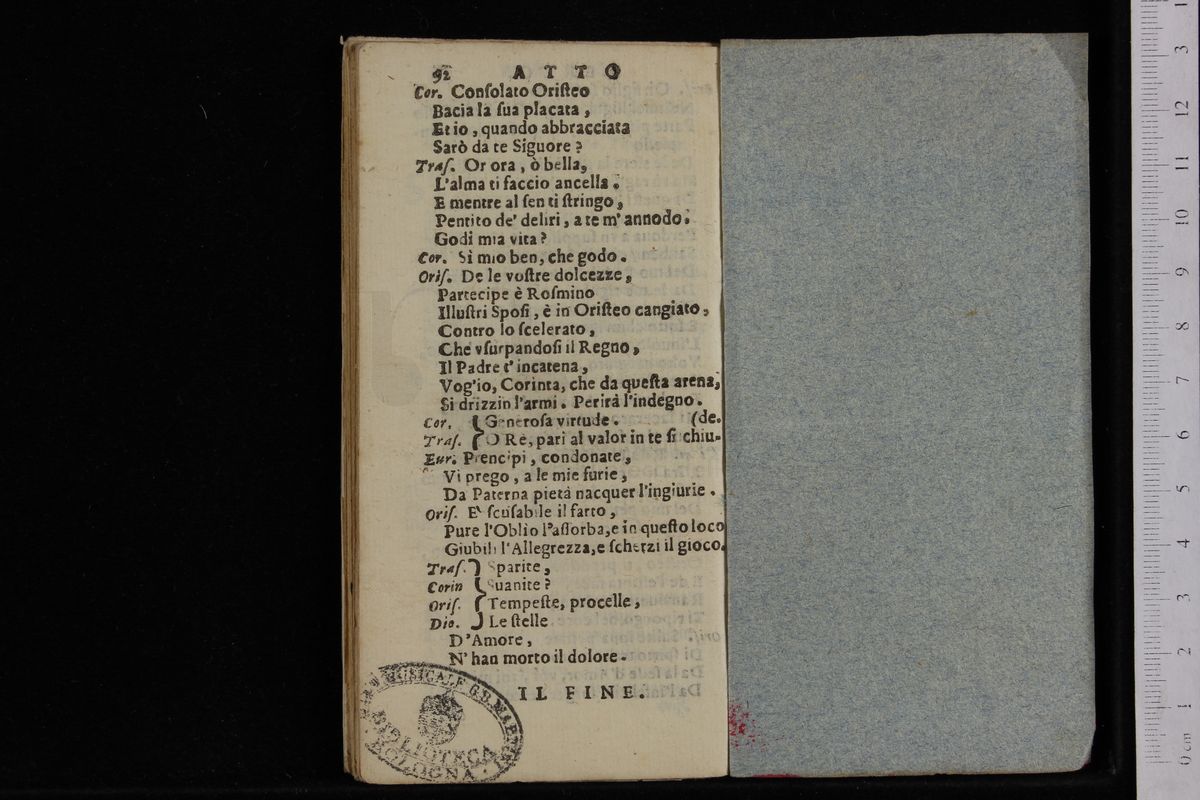 92 ATTO
Cor. Conſolato Oriſteo
Bacia la ſua placata,
Et io, quando abbracciata
Sarò da te Siguore?
Traſ. Or ora, ò bella,
L'alma ti faccio ancella.
E mentre al ſen ti ſtringo,
Pentito de' deliri, a te m' annodo.
Godi mia vita?
Cor. Sì mio ben, che godo.
Oriſ. De le voſtre dolcezze,
Partecipe è Roſmino
Illuſtri Spoſi, è in Oriſteo cangiato,
Contro lo ſcelerato,
Che vſurpandoſi il Regno,
Il Padre t' incatena,
Vog'io, Corinta, che da queſta arena,
Si drizzin l'armi. Perirà l'indegno.
Cor. Generoſa virtude. (de.
Traſ. O Re, pari al valor in te ſi chiu-
Eur. Prencipi, condonate,
Vi prego, a le mie furie,
Da Paterna pietà nacquer l'ingiurie.
Oriſ. E' ſcuſabile il fatto,
Pure l'Oblio l'aſſorba, e in queſto loco
Giubili l'Allegrezza, e ſcherzi il gioco.
Traſ. Sparite,
Corin Suanite?
Oriſ. Tempeſte, procelle,
Dio. Le ſtelle
D'Amore,
N' han morto il dolore.
IL FINE.
MUSICALE G.B. MARTINI
BIBLIOTECA
BOLOGNA
0 cm 1 2 3 4 5 6 7 8 9 10 11 12 13